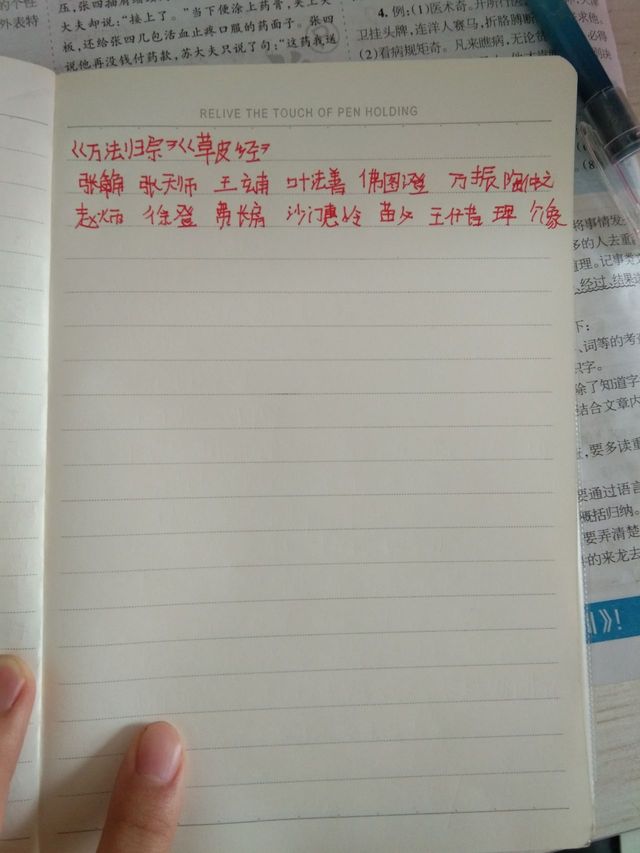 的个性
外表特
大夫却说：“接上了。”当下便涂上药膏，夹上夹
板，还给张四几包活血止疼口服的药面子。张四
说他再没钱付药款，苏大夫只说了句：“这药我送
4. 例：(1)医术奇。
卫挂头牌，连洋人赛马，折胳膊断
求他。
(2)看病规矩奇。凡来瞧病，无论
必得
RELIVE THE TOUCH OF PEN HOLDING
《万法归宗》《草皮经》
张天师 王玄甫 叶法善 佛图澄 万振 陶仲文
赵炳 徐登 费长房 沙门惠怜 苗父 王仔昔 介象
将事情发
多的人去重
理。记事类
、经过、结果
下：
、词等的考
识字。
除了知道字
结合文章内
，要多读重
要通过语言
概括归纳。
要弄清楚
的来龙去